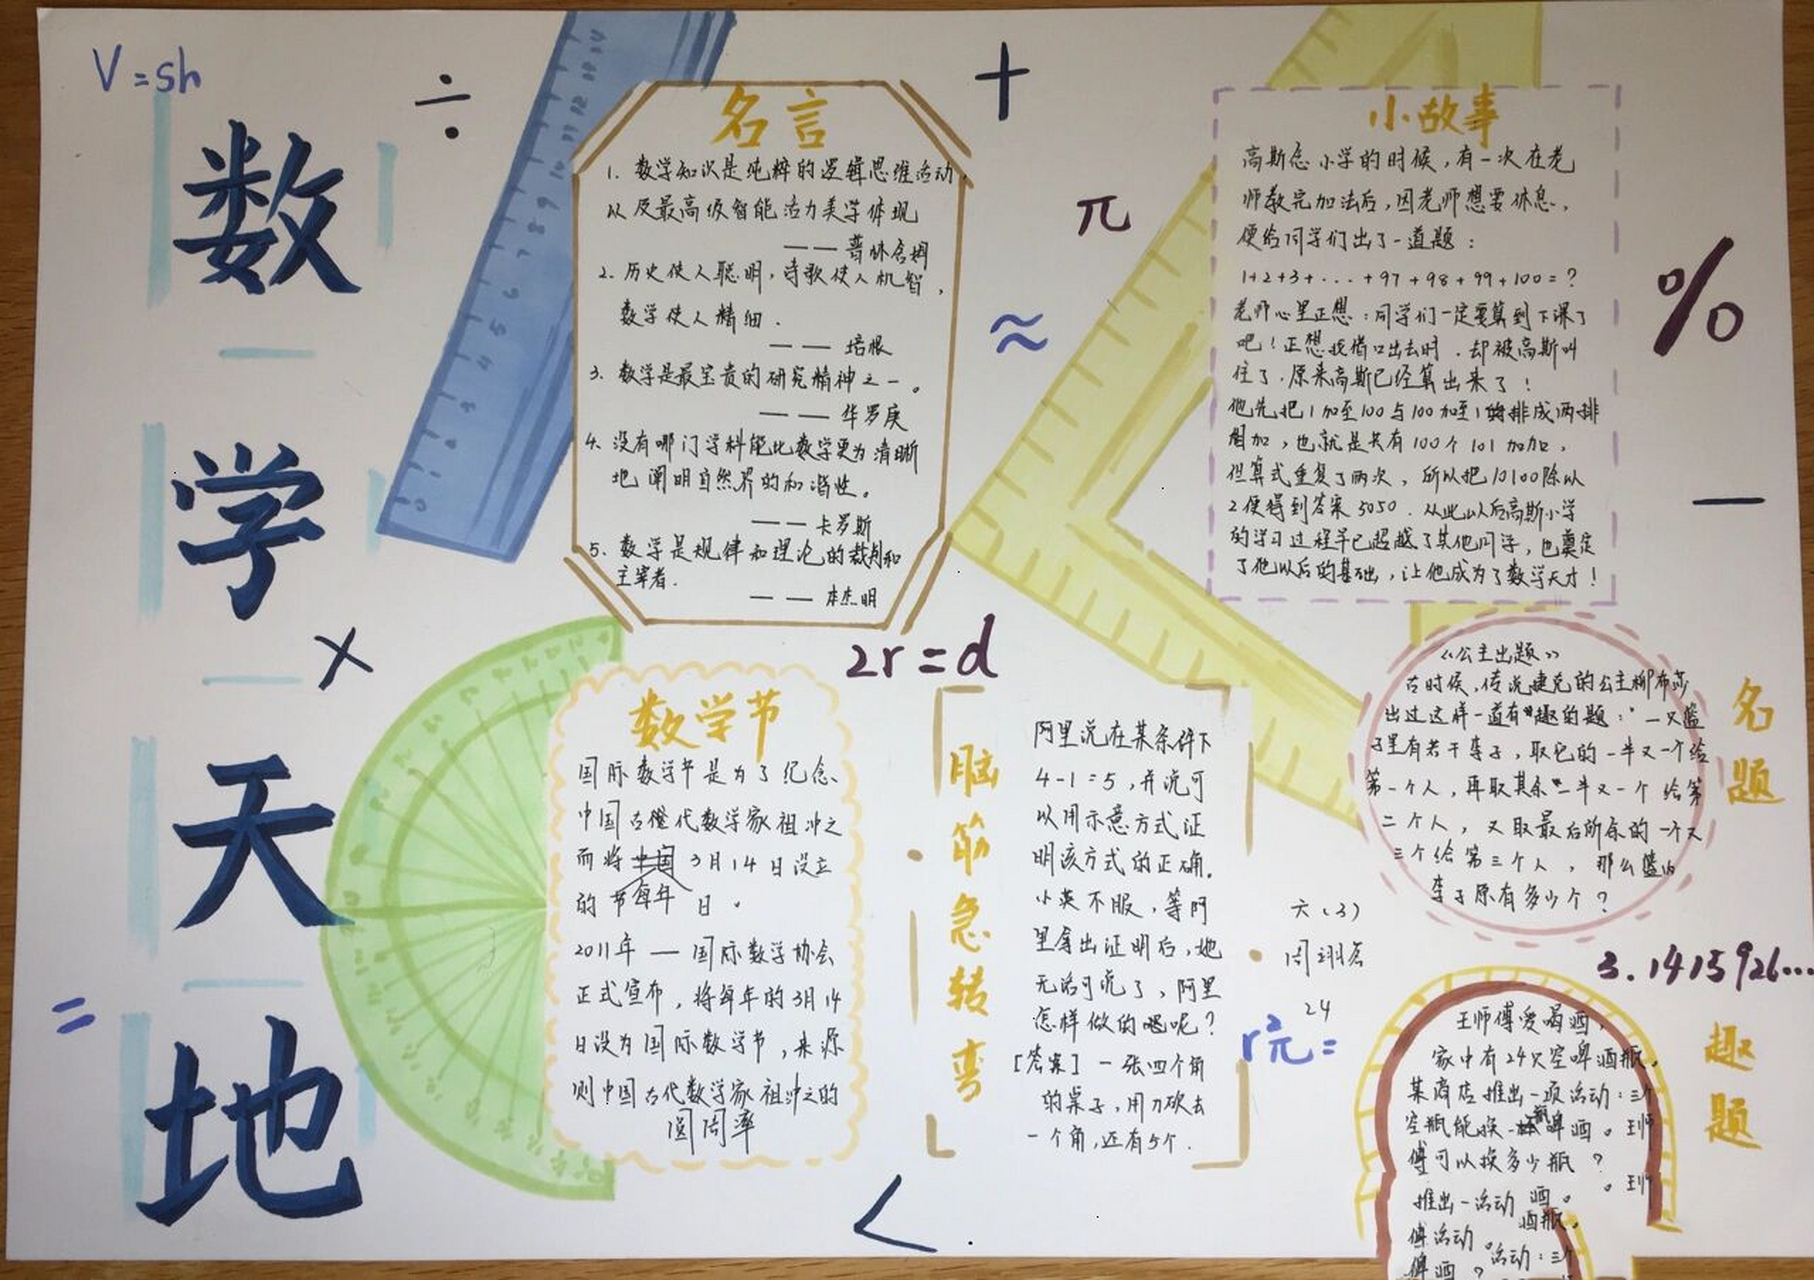 V=sh
÷
+
数
学
天
地
名言
1. 数学知识是纯粹的逻辑思维活动，
以及最高级智能活力美学体现
——普林舍姆
2. 历史使人聪明，诗歌使人机智，
数学使人精细．
——培根
3. 数学是最宝贵的研究精神之一。
——华罗庚
4. 没有哪门学科能比数学更为清晰
地阐明自然界的和谐性。
——卡罗斯
5. 数学是规律和理论的裁判和
主宰者．
——本杰明
π
≈
小故事
高斯念小学的时候，有一次在老
师教完加法后，因老师想要休息，
便给同学们出了一道题：
1+2+3+...+97+98+99+100=?
老师心里正想：同学们一定要算到下课了
吧！正想找借口出去时．却被高斯叫
住了．原来高斯已经算出来了！
他先把1加至100与100加至1的排成两排
相加，也就是共有100个101加加，
但算式重复了两次，所以把10100除以
2便得到答案5050．从此以后高斯小学
的学习过程早已超越了其他同学，也奠定
了他以后的基础，让他成为了数学天才！
%
—
×
=
2r=d
数学节
国际数学节是为了纪念
中国古代数学家祖冲之
而将 3月14日设立
的节 每年 日。
2011年 — 国际数学协会
正式宣布，将每年的3月14
日设为国际数学节，来源
则中国古代数学家祖冲之的
圆周率
脑
筋
急
转
弯
阿里说在某条件下
4-1=5，并说可
以用示意方式证
明该方式的正确．
小英不服，等阿
里拿出证明后，她
无话可说了，阿里
怎样做的呢？
[答案] 一张四个角
的桌子，用刀砍去
一个角，还有5个．
<
六(3)
周翊
24
r²π=
《公主出题》
古时候，传说捷克的公主柳布莎
出过这样一道有趣的题："一只篮
子里有若干李子，取它的一半又一个给
第一个人，再取其余一半又一个给第
二个人，又取最后所余的一个又
三个给第三个人，那么篮内
李子原有多少个？
名
题
3.1415926...
趣
题
王师傅爱喝酒，
家中有24只空啤酒瓶．
某商店推出一项活动：三个
空瓶能换一瓶啤酒。王师
傅可以换多少瓶？
。王师
推出一活动 酒。
酒瓶．
傅活动。
活动：三个
啤酒？